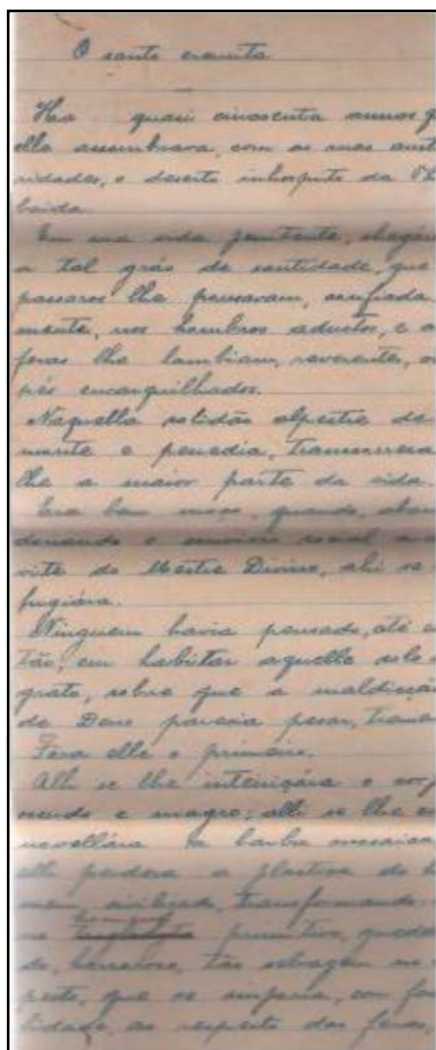 O santo eremita
Ha quasi cincoenta annos q
elle assombrava, com as suas aust
ridades, o deserto inhospito da Th
baida.
Em sua vida penitente, chegár
a tal gráo de santidade, que
passaros lhe pousavam, confiada
mente, nos hombros adustos, e a
feras lhe lambiam, reverentes, o
pés encarquilhados.
Naquella solidão alpestre de
monte e penedia, transcorrera
lhe a maior parte da vida.
Era bem moço, quando, aban
donando o convivio social, ao
vite do Mestre Divino, ali se
fugiára.
Ninguem havia pensado, até e
tão, em habitar aquelle solo
grato, sobre que a maldicção
de Deus parecia pesar, 
Fôra elle o primeiro.
Alli se lhe inteiriçára o corp
e magro; alli se lhe e
novellára a barba 
alli perdera a plastica do h
mem civilisado, transformando
no primitivo, 
do, tão selvagem no
pecto, que se impunha, com fa
lidade, ao respeito das feras,